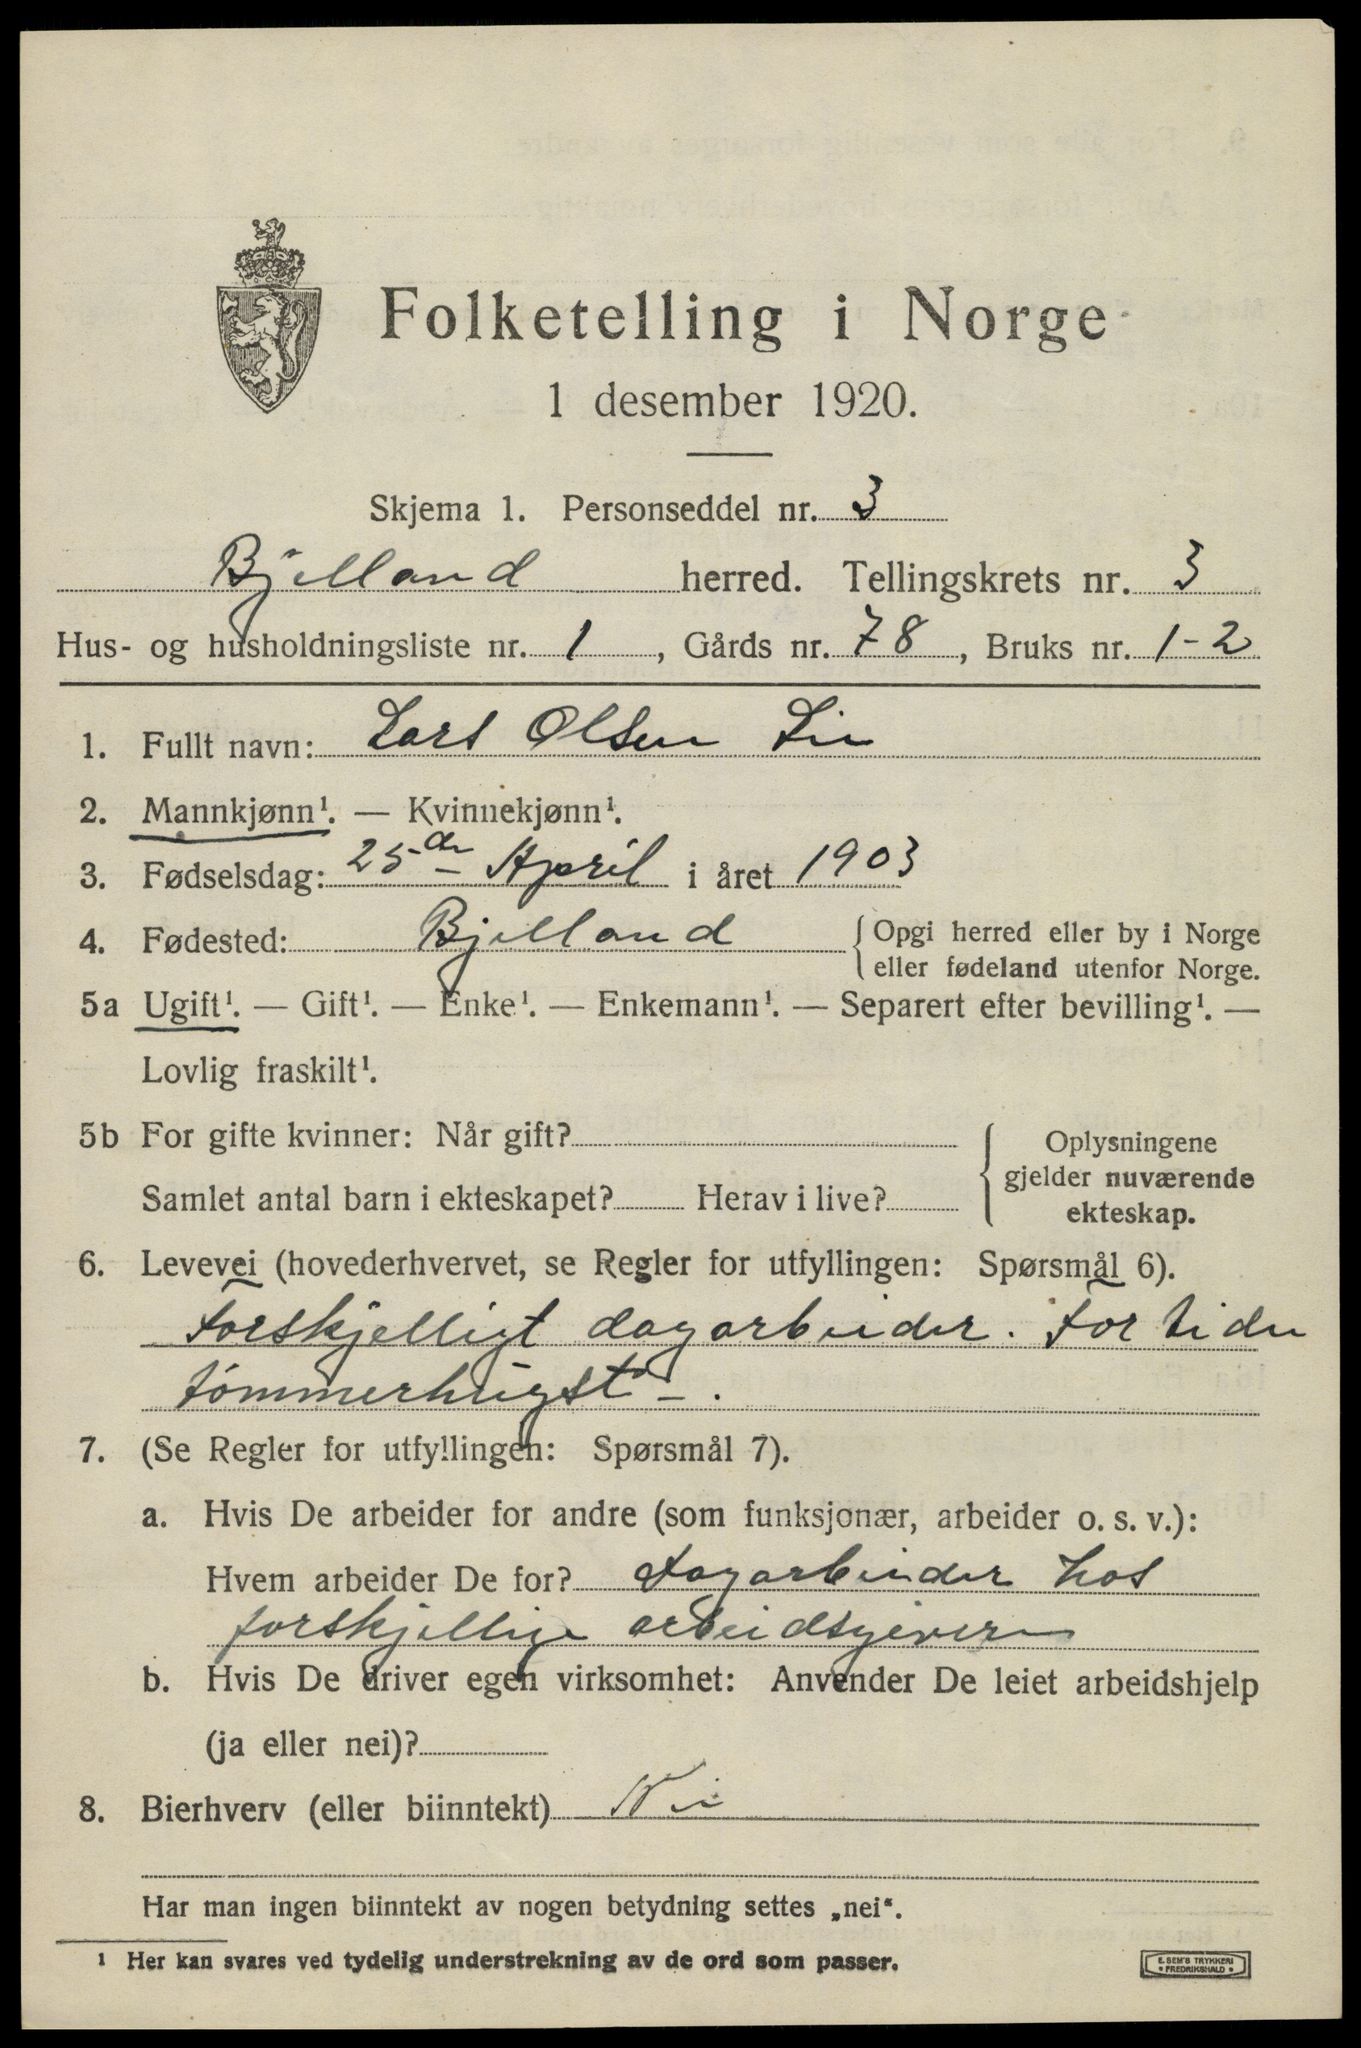 Folketelling i Norge
1 desember 1920.
Skjema 1. Personseddel nr. 3
Bjelland herred. Tellingskrets nr. 3
Hus- og husholdningsliste nr. 1, Gårds nr. 78, Bruks nr. 1-2
1. Fullt navn: Lars Olsen Lie
2. Mannkjønn¹. — Kvinnekjønn¹.
3. Fødselsdag: 25de April i året 1903
4. Fødested: Bjelland {Opgi herred eller by i Norge
eller fødeland utenfor Norge.
5a Ugift¹. — Gift¹. — Enke¹. — Enkemann¹. — Separert efter bevilling¹. —
Lovlig fraskilt¹.
5b For gifte kvinner: Når gift?
Samlet antal barn i ekteskapet? Herav i live?
{ Oplysningene
gjelder nuværende
ekteskap.
6. Levevei (hovederhvervet, se Regler for utfyllingen: Spørsmål 6).
Forskjelligt dagarbeider. For tiden
tömmerhugst -.
7. (Se Regler for utfyllingen: Spørsmål 7).
a. Hvis De arbeider for andre (som funksjonær, arbeider o. s. v.):
Hvem arbeider De for? Dagarbeider hos
forskjellige arbeidsgivere
b. Hvis De driver egen virksomhet: Anvender De leiet arbeidshjelp
(ja eller nei)?
8. Bierhverv (eller biinntekt) Nei
Har man ingen biinntekt av nogen betydning settes „nei“.
¹ Her kan svares ved tydelig understrekning av de ord som passer.
E. SEM'S TRYKKERI
• FREDRIKSHALD •